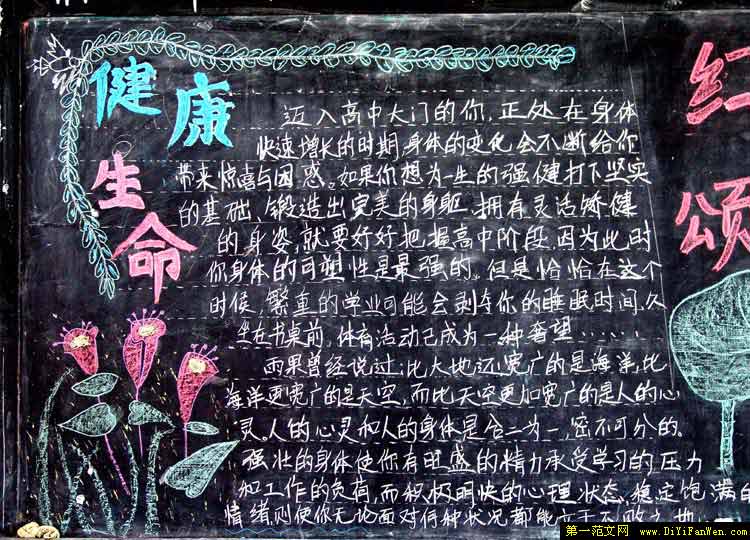 健康
生命
迈入高中大门的你,正处在身体
快速增长的时期,身体的变化会不断给你
带来惊喜与困惑。如果你想为一生的强健打下坚实
的基础、锻造出完美的身躯、拥有灵活矫健
的身姿,就要好好把握高中阶段,因为此时
你身体的可塑性是最强的。但是恰恰在这个
时候,繁重的学业可能会剥夺你的睡眠时间,久
坐在书桌前,体育活动已成为一种奢望……
雨果曾经说过:比大地还宽广的是海洋,比
海洋更宽广的是天空,而比天空更加宽广的是人的心
灵。人的心灵和人的身体是合二为一,密不可分的。
强壮的身体使你有旺盛的精力承受学习的压力
和工作的负荷,而积极明快的心理状态,稳定饱满的
情绪,则使你无论面对何种状况都能立于不败之地
红
颂
第一范文网 www.DiYiFanWen.com